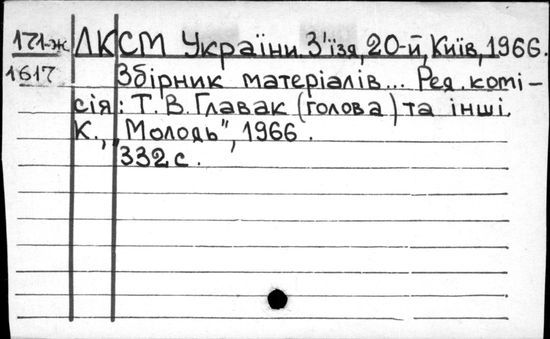 171-ж ЛКСМ України. З'їзд, 20-й, Київ, 1966.
1617 Збірник матеріалів... Ред. комі-
сія: Т. В. Главак (голова) та інші.
К., „Молодь", 1966.
332 с.